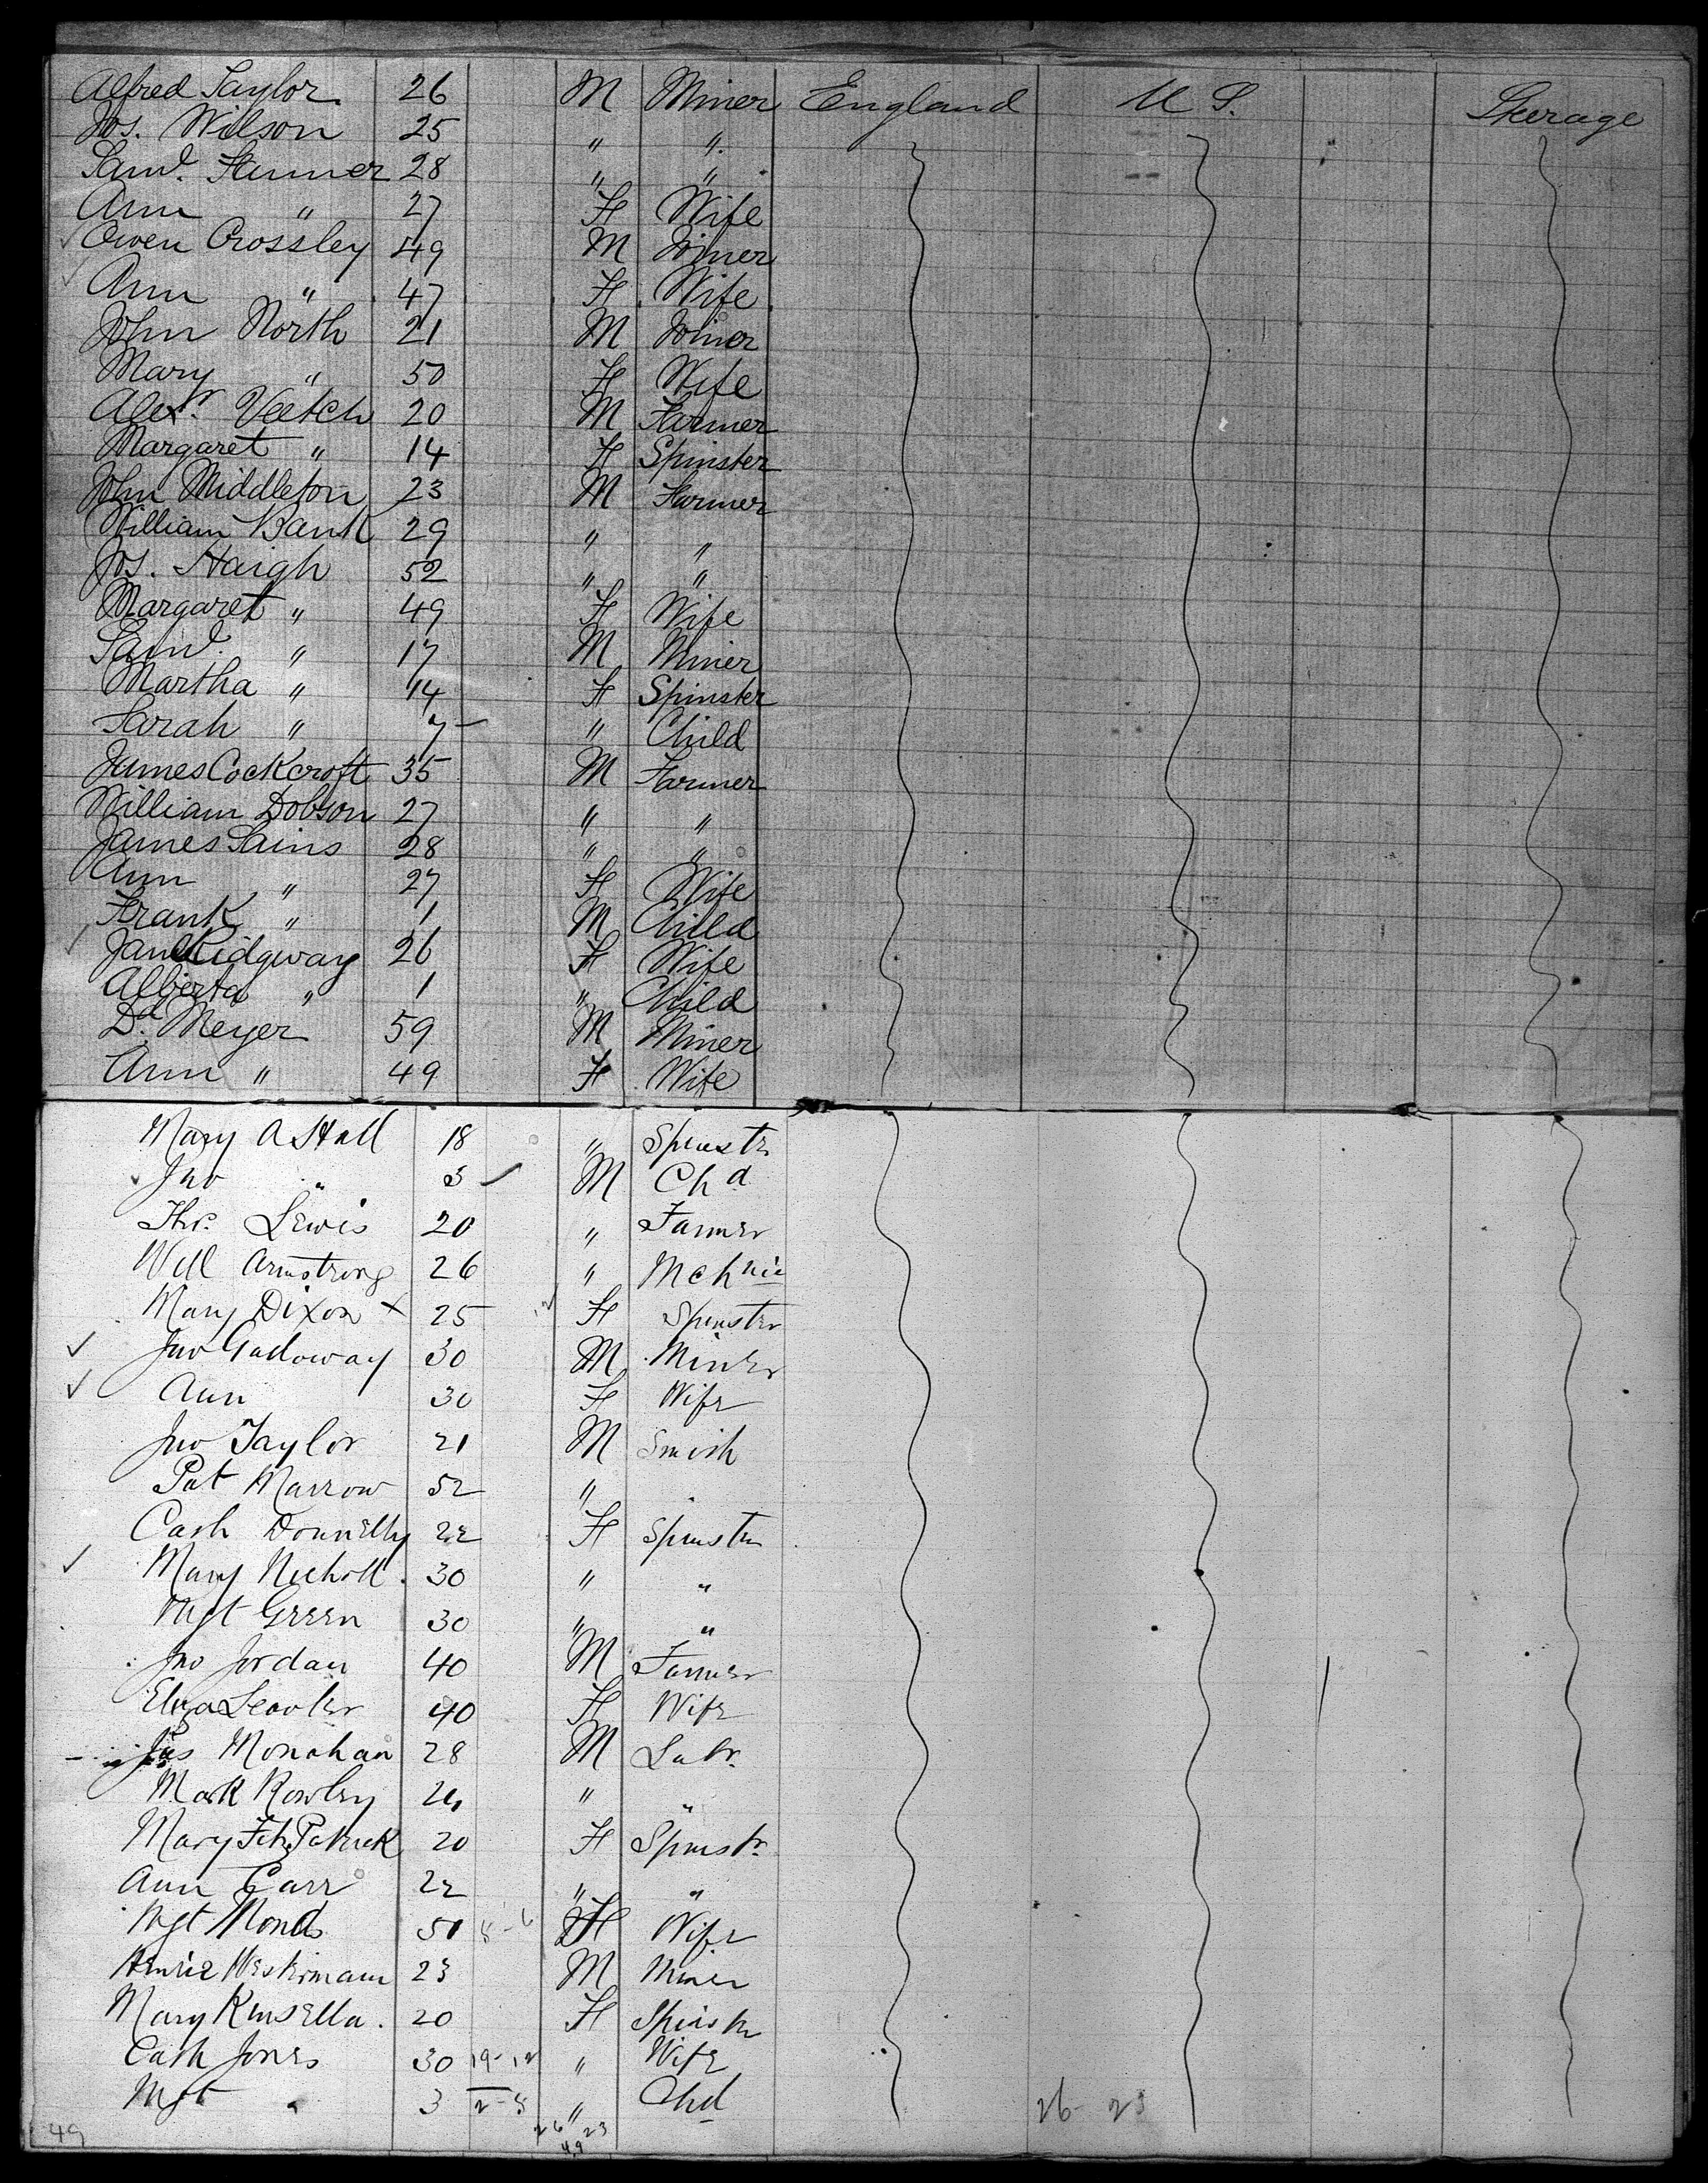 Alfred Taylor 26 M Miner England U S. Steerage
Jos. Wilson 25 " "
Saml. Farmer 28 " "
Ann " 27 F Wife
Owen Crossley 49 M Joiner
Ann " 47 F Wife
John North 21 M Joiner
Mary " 50 F Wife
Alexr. Veitch 20 M Farmer
Margaret " 14 F Spinster
John Middleton 23 M Farmer
William Bank 29 " "
Jos. Haigh 52 " "
Margaret " 49 F Wife
Saml. " 17 M Miner
Martha " 14 F Spinster
Sarah " 7 " Child
James Cockcroft 35 M Farmer
William Dobson 27 " "
James Sains 28 " "
Ann " 27 F Wife
Frank " 1 M Child
Jane Ridgway 26 F Wife
Alberta " 1 " Child
Dd. Meyer 59 M Miner
Ann " 49 F Wife
Mary A Hall 18 " Spinstr
Jno " 3 M Chd
Thos. Lewis 20 " Farmer
Will Armstrong 26 " Mchnic
Mary Dixon x 25 F Spinster
Jno Galloway 30 M Miner
Ann 30 F Wife
Jno Taylor 21 M Smith
Pat Marrow 52 "
Cath Donnelly 22 F Spinstr
Mary Nicholl 30 " "
Mgt Green 30 " "
Jno Jordan 40 M Farmer
Eliza 40 F Wife
Jas Monahan 28 M Labr.
Mark Rowley 21 " "
Mary FitzPatrick 20 F Spinstr.
Ann Carr 22 " "
Mgt Monds 51 F Wife
Henrie Westermann 23 M Miner
Mary Kinsella. 20 F Spinstr
Cath Jones 30 19-12 " Wife
Mgt " 3 2-3 " Chd
26 23
26 23
49
49